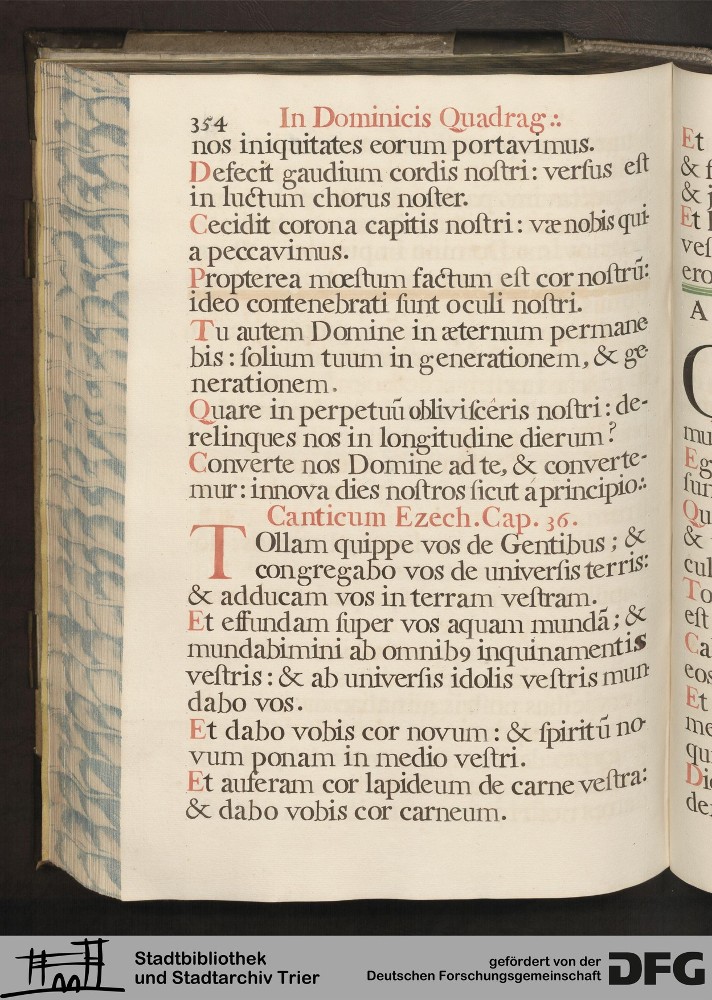 354 In Dominicis Quadrag:.
nos iniquitates eorum portavimus.
Defecit gaudium cordis noſtri: verſus eſt
in luctum chorus noſter.
Cecidit corona capitis noſtri: væ nobis qui-
a peccavimus.
Propterea mœſtum factum eſt cor noſtrū:
ideo contenebrati ſunt oculi noſtri.
Tu autem Domine in æternum permane
bis: ſolium tuum in generationem, & ge-
nerationem.
Quare in perpetuū obliviſcéris noſtri: de-
relinques nos in longitudine dierum?
Converte nos Domine ad te, & converte-
mur: innova dies noſtros ſicut á principio:.
Canticum Ezech. Cap. 36.
TOllam quippe vos de Gentibus; &
congregabo vos de univerſis terris:
& adducam vos in terram veſtram.
Et effundam ſuper vos aquam mundã; &
mundabimini ab omnib9 inquinamentis
veſtris: & ab univerſis idolis veſtris mun-
dabo vos.
Et dabo vobis cor novum: & ſpiritū no-
vum ponam in medio veſtri.
Et auferam cor lapideum de carne veſtra:
& dabo vobis cor carneum.
Et
&
&
Et
A
mu
Qu
&
To
eſt
Et
Stadtbibliothek
und Stadtarchiv Trier
gefördert von der
Deutschen Forschungsgemeinschaft
DFG